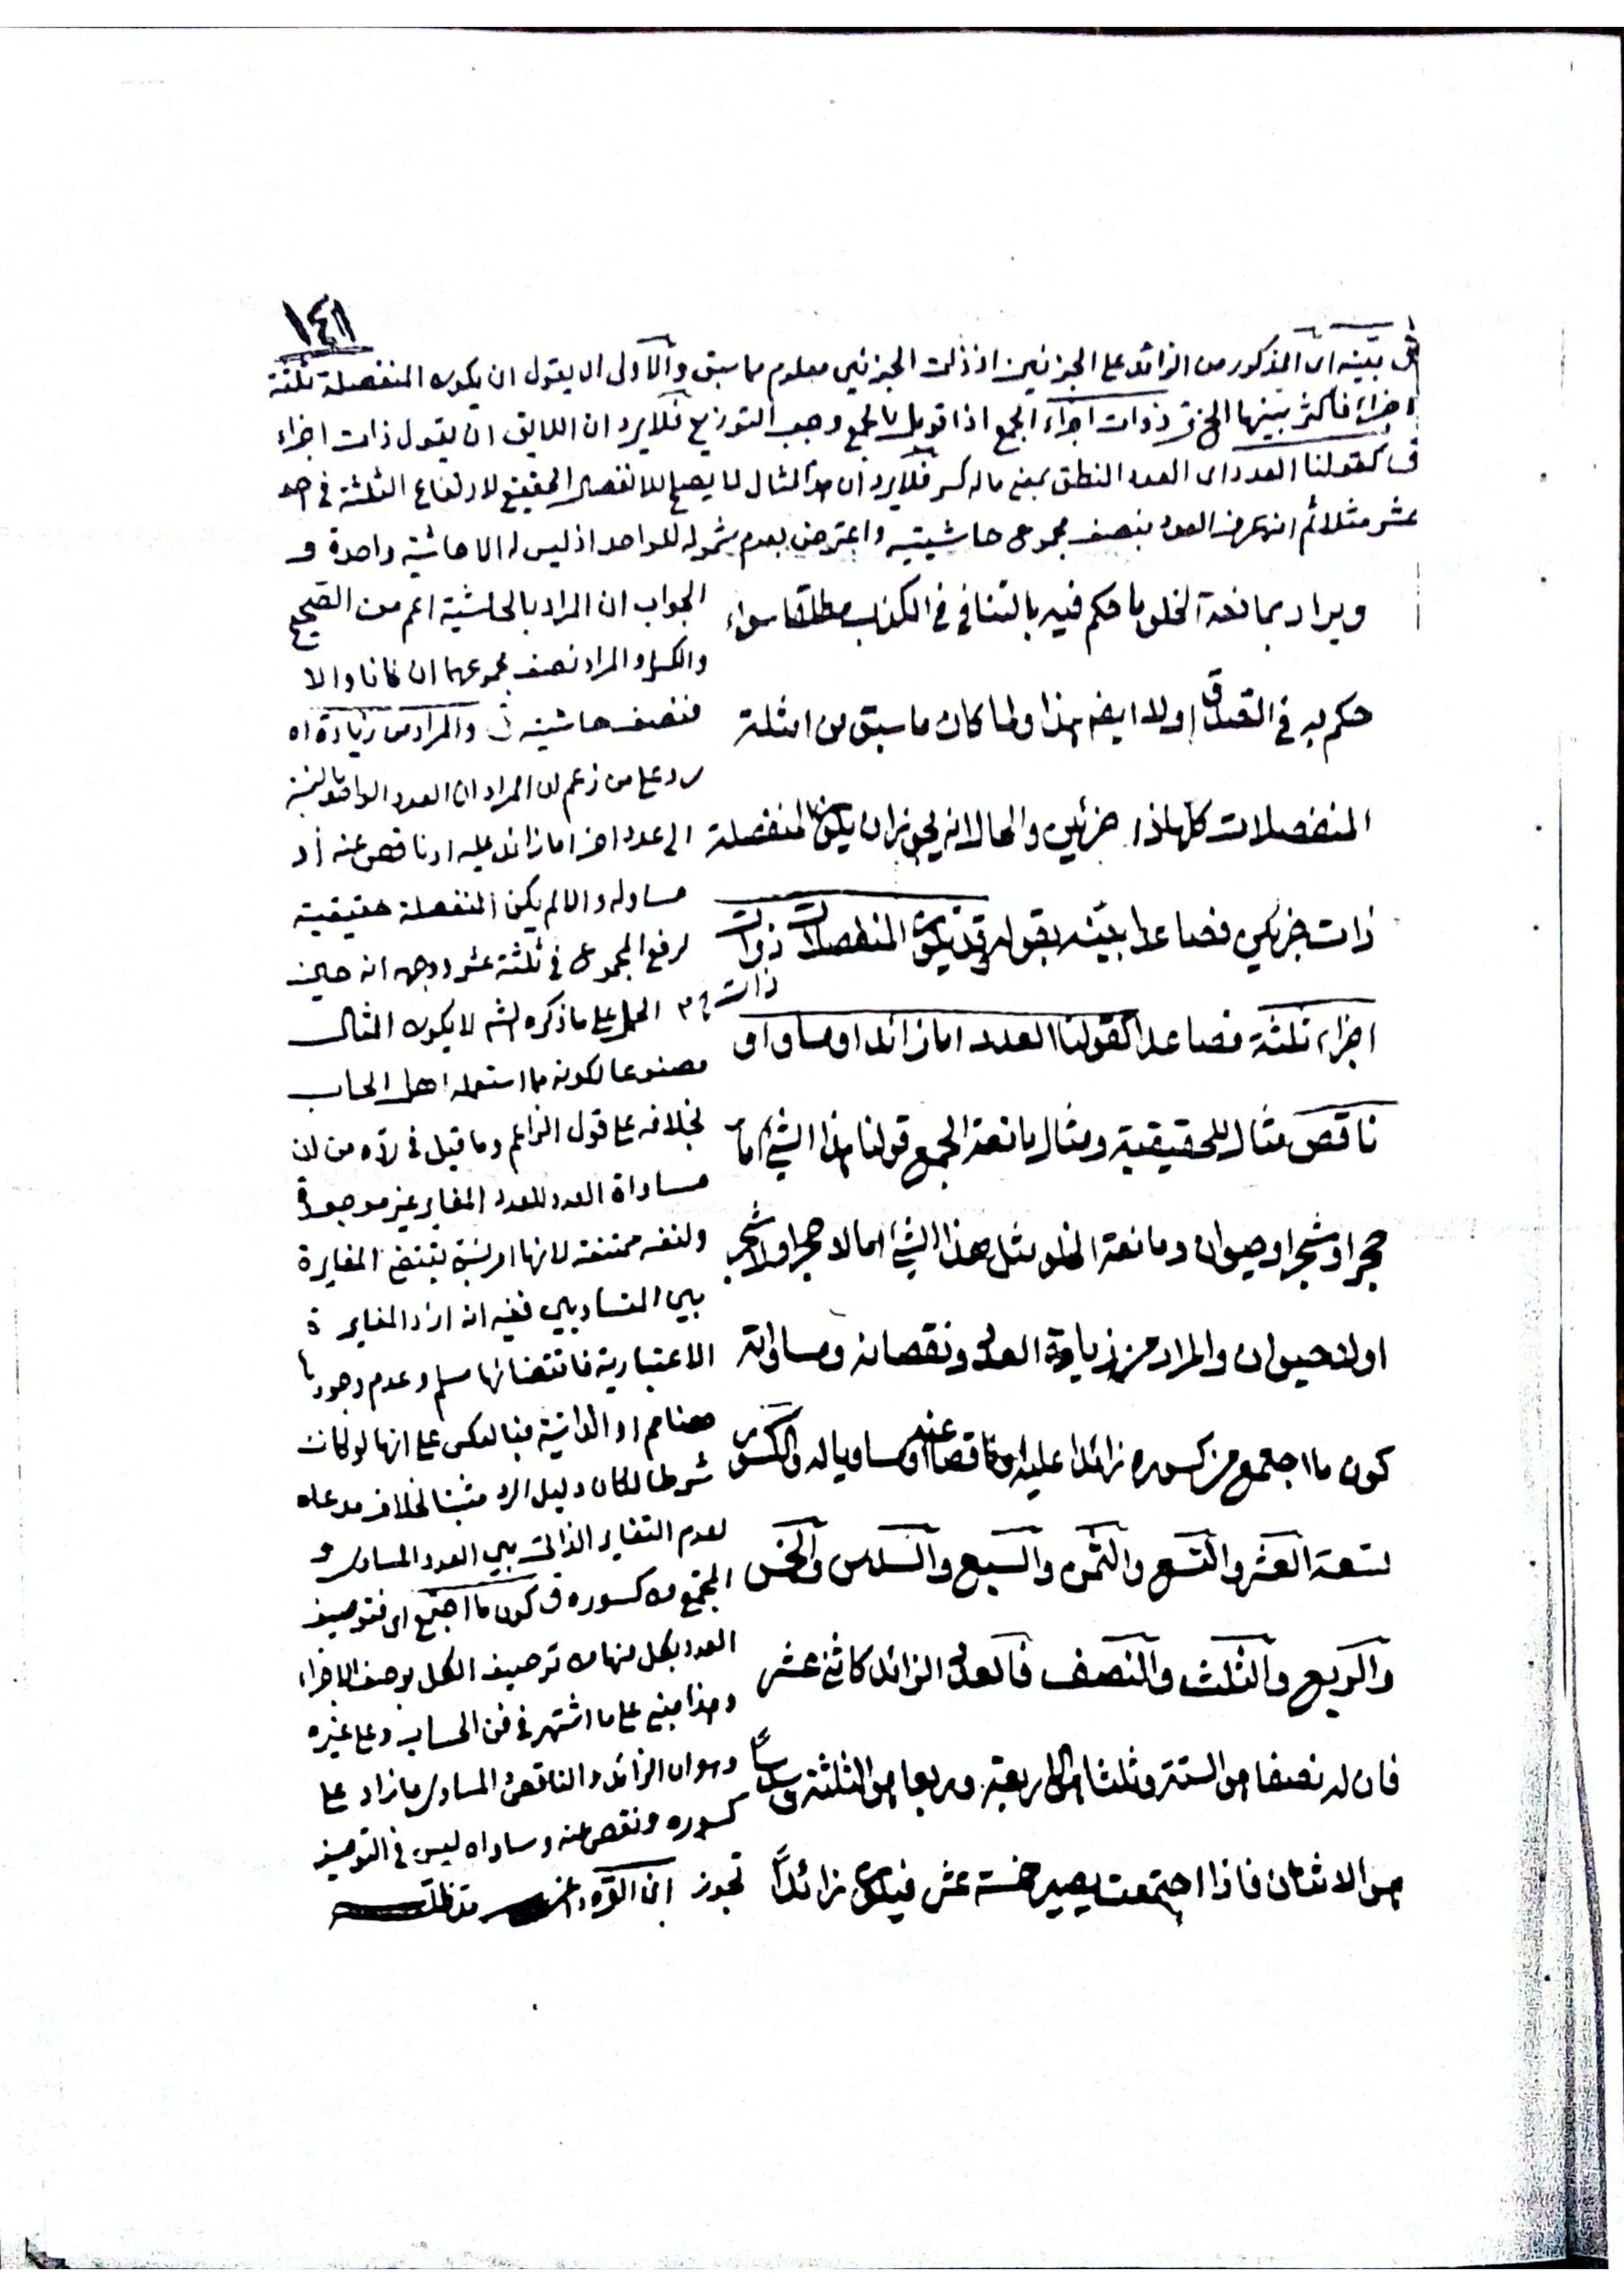 ١٤١
بينه اى المذكور من الزائد على الجزئين اذ ذات الجزئين معلوم مما سبق والاولى ان يقول ان يكون المنفصلة ثلثة
اجزاء فاكثر بينها الخ ذوات اجزاء الجمع اذا قوبل بالجمع وجب التوزيع فلا يرد ان اللايق ان يقول ذات اجزاء
كقولنا العدد اى العدد المنطق بمعنى ما له كسر فلا يرد ان هذا المثال لا يصلح للانفصال الحقيقى لارتفاع الثلثة فى احد
عشر مثلا ثم انه عرف العدد بنصف مجموع حاشيتيه واعترض بعدم شموله للواحد اذ ليس له الا حاشية واحدة و
ويراد بمانعة الخلو ما حكم فيه بالتنافى فى الكذب مطلقا سواء
حكم به فى الصدق او لا ايضا هذا ولما كان ما سبق من امثلة
المنفصلات كلها ذا جزئين والحال انه يجوز ان يكون المنفصلة
ذات جزئين فصاعدا بينه بقوله وقد يكون المنفصلات ذوات
اجزاء ثلثة فصاعدا كقولنا العدد اما زائد او مساو او
ناقص مثال للحقيقية ومثال مانعة الجمع قولنا هذا الشئ اما
حجر او شجر او حيوان ومانعة الخلو مثل هذا الشئ اما لا حجر او لا شجر
او لا حيوان والمراد من زيادة العدد ونقصانه ومساواته
كون ما اجتمع من كسوره زائدا عليه او ناقصا عنه او مساويا له والكسور
تسعة العشر والتسع والثمن والسبع والسدس والخمس
والربع والثلث والنصف فالعدد الزائد كاثنى عشر
فان له نصفا هو الستة وثلثا هو الاربعة وربعا هو الثلثة وسدسا
هو الاثنان فاذا اجتمعت يصير خمسة عشر فيكون زائدا
الجواب ان المراد بالحاشية اعم من الصحيح
والكسر والمراد نصف مجموعهما ان كانا والا
فنصف حاشيته والمراد من زيادة اه
رد على من زعم ان المراد ان العدد الواحد بالنسبة
الى عدد اخر اما زائد عليه او ناقص عنه او
مساو له والا لم يكن المنفصلة حقيقية
لرفع المجموع فى ثلثة عشر ووجهه انه حين
ذات
الحمل على ما ذكره الشم لا يكون المثال
مصنوعا لكونه مما استعمله اهل الحساب
بخلافه على قول الزاعم وما قيل فى رده من ان
مساواة العدد للعدد المغاير غير موجودة
ولنفسه ممتنعة لانها امر نسبى يقتضى المغايرة
بين المتساويين ففيه انه ان اراد المغايرة
الاعتبارية فاقتضائها مسلم وعدم وجودها
ممنوع او الذاتية فبالعكس على انها لو كانت
شرطا لكان دليل الرد مثبتا لخلاف مدعاه
لعدم التغاير الذاتى بين العدد المساوى و
المجتمع من كسوره كون ما اجتمع اى فتوصيف
العدد بكل منها من توصيف الكل بوصف الاجزاء
وهذا مبنى على ما اشتهر فى فن الحساب وعلى غيره
وهو ان الزائد والناقص والمساوى ما زاد على
كسوره ونقص عنه وساواه ليس فى التوصيف
تجوز ابن القره داغى